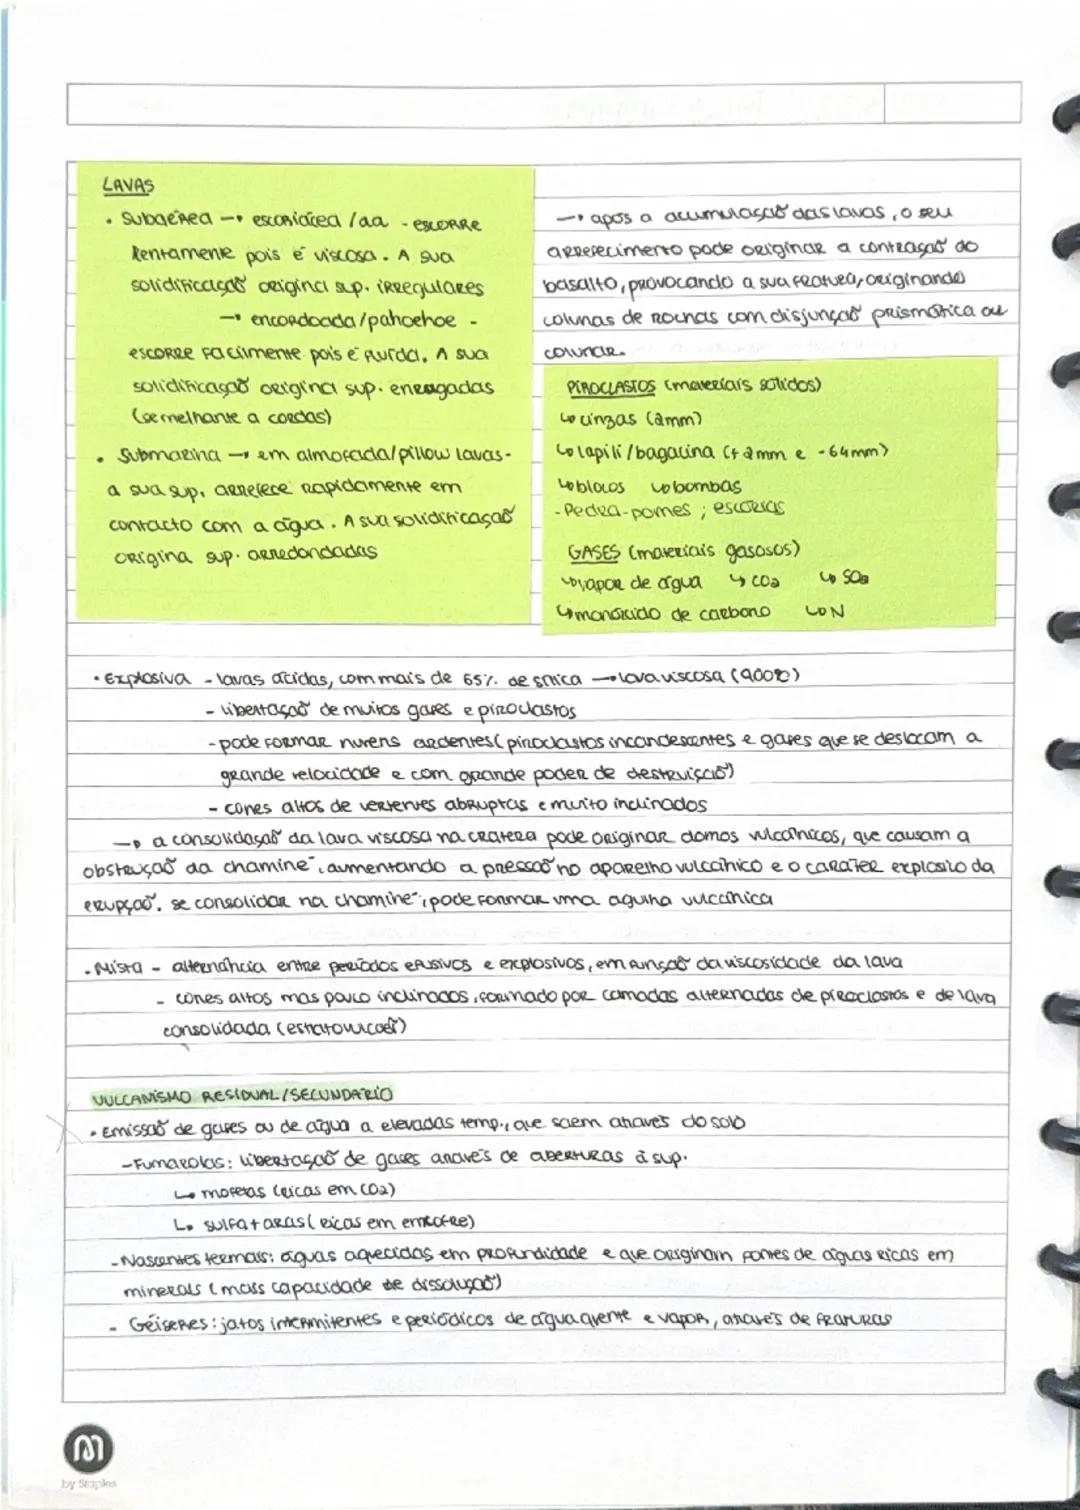 LAVAS
• Subaérea → escoriácea / aa - escorre
lentamente pois é viscosa. A sua
solidificação origina sup. irregulares
→ encordoada/pahoehoe -
escorre facilmente pois é fluída. A sua
solidificação origina sup. enrugadas
(semelhante a cordas)
• Submarina → em almofada/pillow lavas -
a sua sup. arrefece rapidamente em
contacto com a água. A sua solidificação
origina sup. arredondadas
→ após a acumulação das lavas, o seu
arrefecimento pode originar a contração do
basalto, provocando a sua fratura, originando
colunas de rochas com disjunção prismática ou
colunar.
PIROCLASTOS (materiais sólidos)
↳ cinzas (2mm)
↳ lapili/bagacina (+2mm e -64mm)
↳ blocos ↳ bombas
- Pedra-pomes ; escórias
GASES (materiais gasosos)
↳ vapor de água ↳ CO2 ↳ SO2
↳ monóxido de carbono ↳ N
• Explosiva - lavas ácidas, com mais de 65% de sílica → lava viscosa (900ºC)
- libertação de muitos gases e piroclastos
- pode formar nuvens ardentes (piroclastos incandescentes e gases que se deslocam a
grande velocidade e com grande poder de destruição)
- cones altos de vertentes abruptas e muito inclinados
→ a consolidação da lava viscosa na cratera pode originar domos vulcânicos, que causam a
obstrução da chaminé, aumentando a pressão no aparelho vulcânico e o caráter explosivo da
erupção. se consolidar na chaminé, pode formar uma agulha vulcânica
• Mista - alternância entre períodos efusivos e explosivos, em função da viscosidade da lava
- cones altos mas pouco inclinados, formado por camadas alternadas de piroclastos e de lava
consolidada (estratovulcão)
VULCANISMO RESIDUAL/SECUNDÁRIO
• Emissão de gases ou de água a elevadas temp., que saem através do solo
- Fumarolas: libertação de gases através de aberturas à sup.
↳ mofetas (ricas em CO2)
↳ sulfataras (ricas em enxofre)
- Nascentes termais: águas aquecidas em profundidade e que originam fontes de águas ricas em
minerais (mais capacidade de dissolução)
- Géiseres: jatos intermitentes e periódicos de água quente e vapor, através de fraturas
by Staples